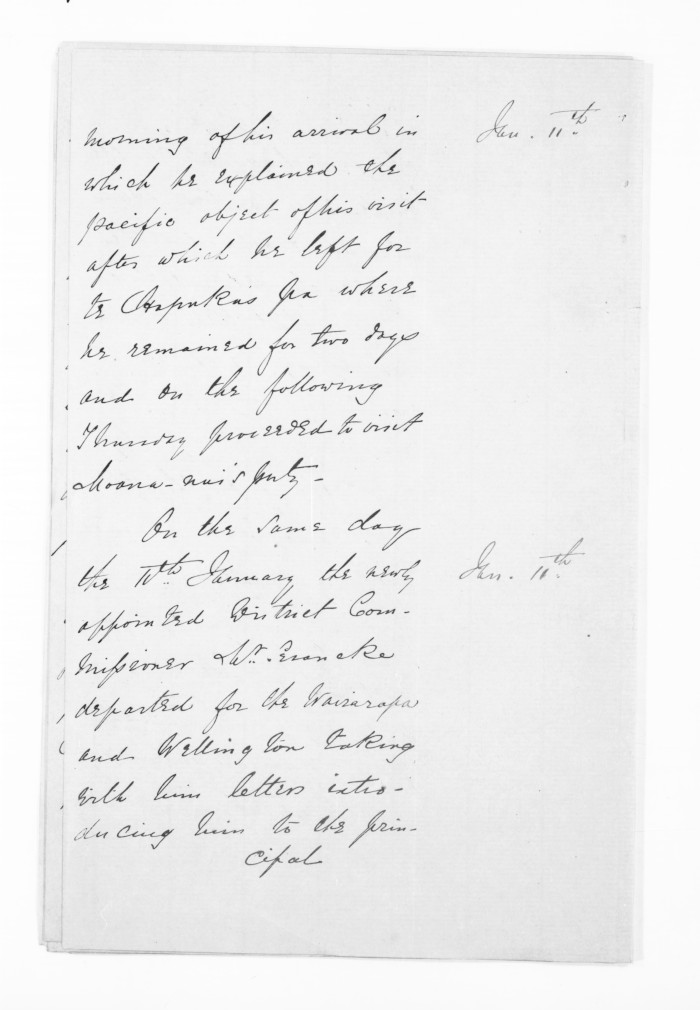 morning of his arrival in
Jan. 11th
which he explained the
pacific object of his visit
after which he left for
te Hapukus Pa where
he remained for two days
and on the following
Thursday proceeded to visit
Moana-nui's party-
On the same day
the 10th January the newly
Jan. 10th
appointed District Com-
missioner Mr.
departed for the Wairarapa
and Wellington taking
with him letters intro-
ducing him to the prin-
cipal